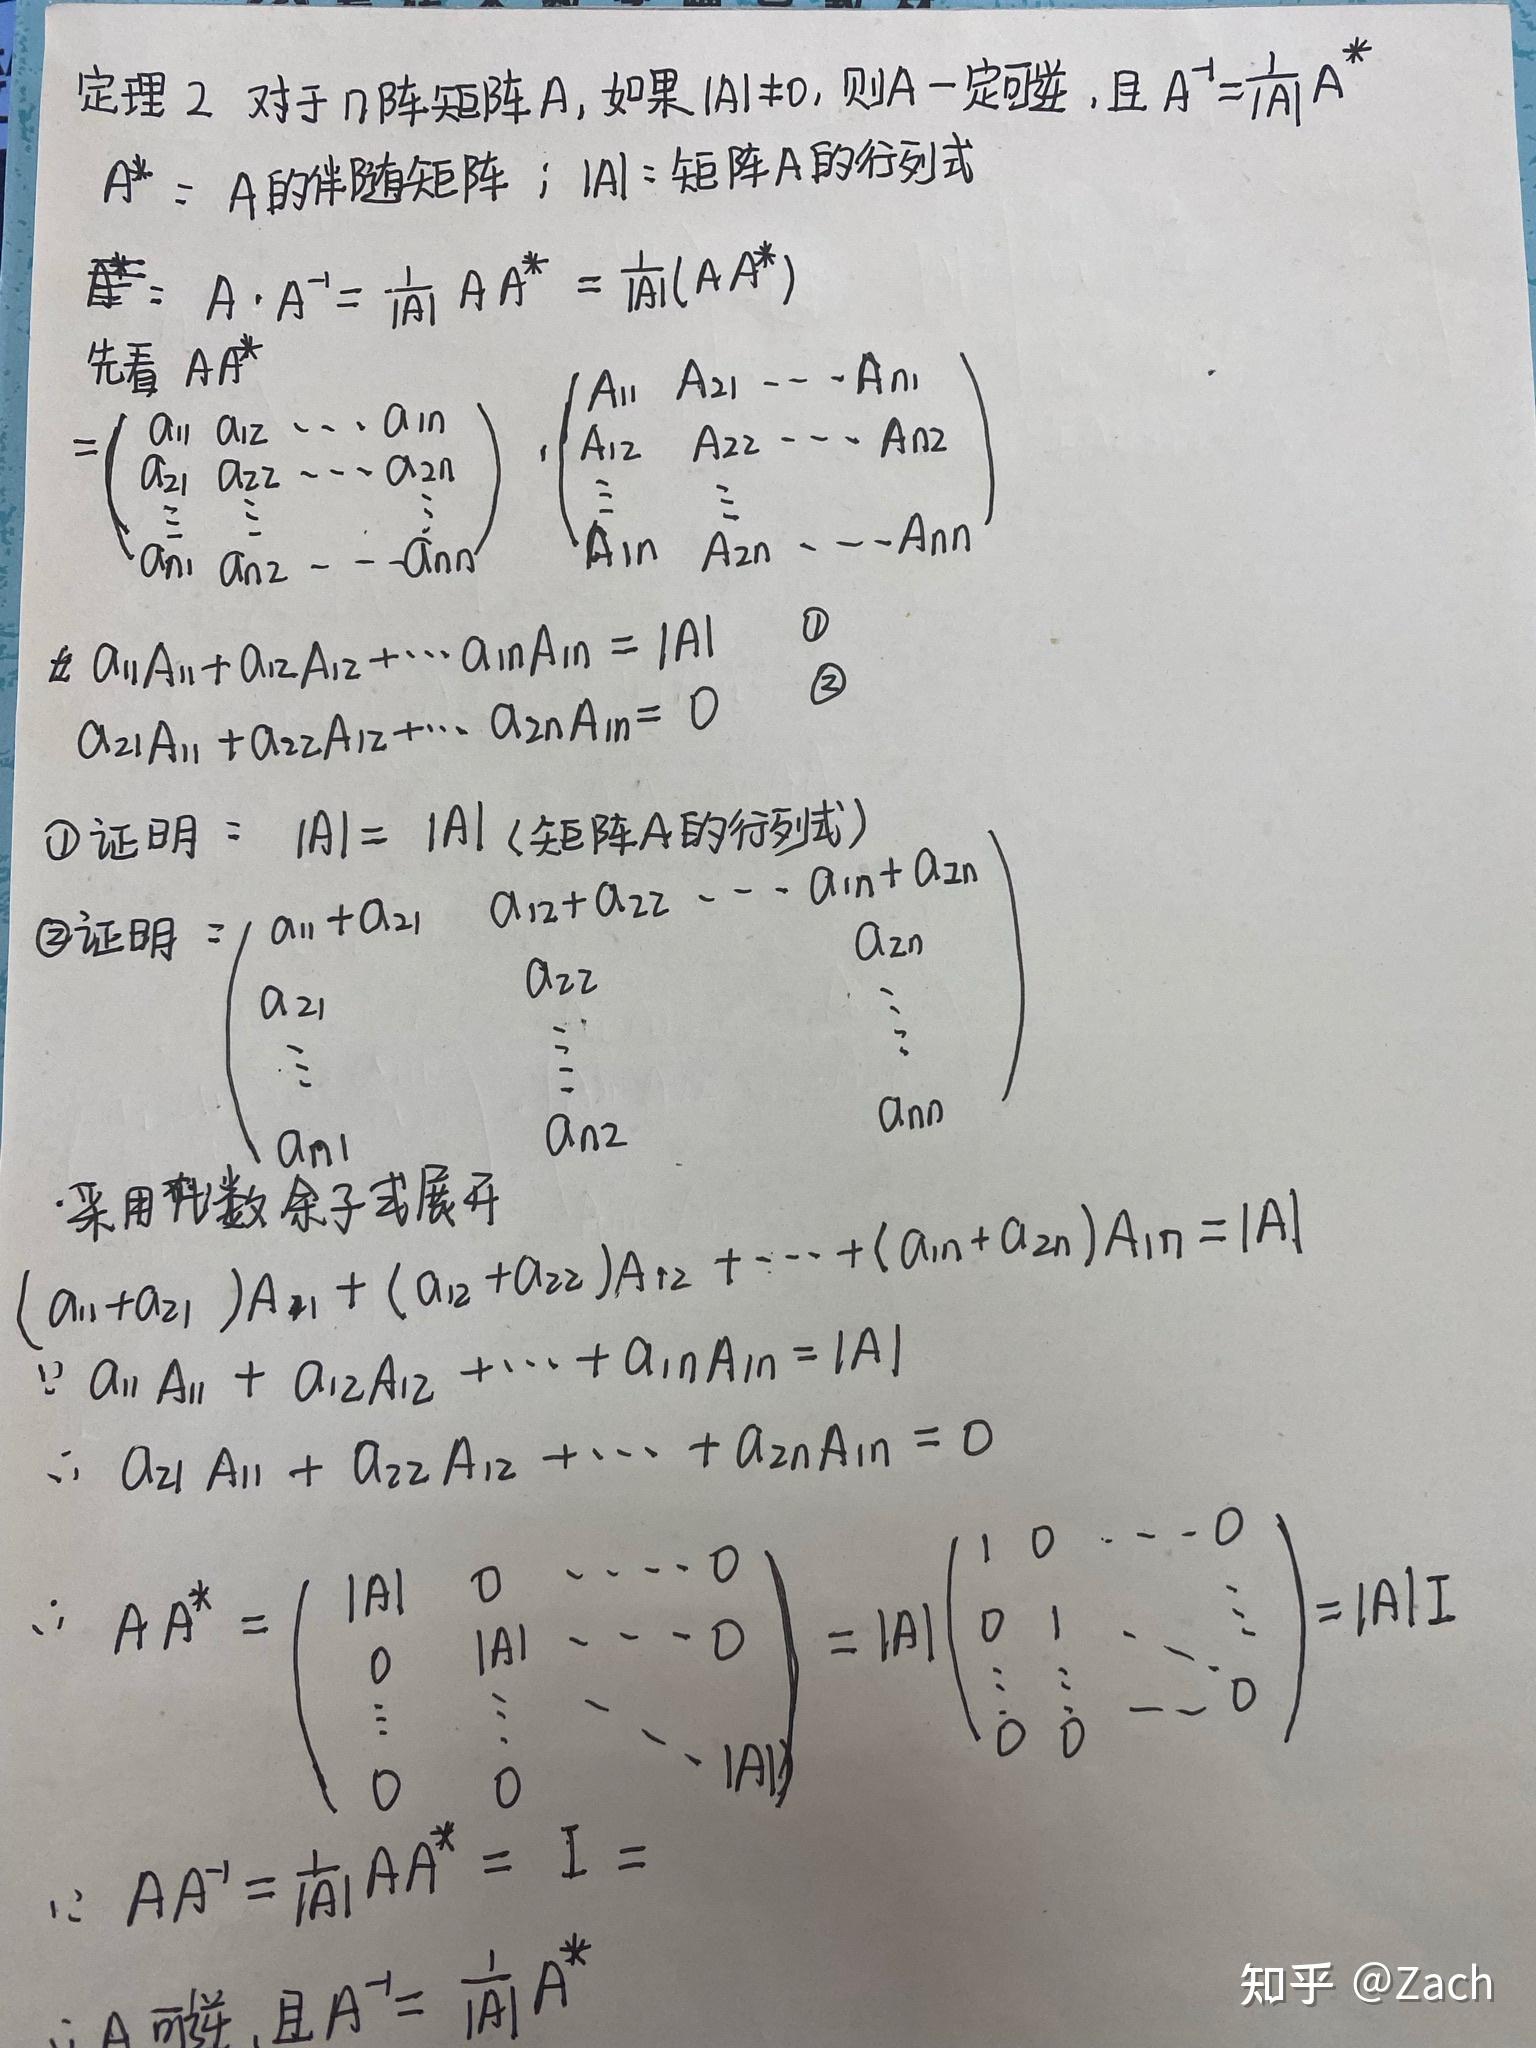 定理2 对于n阵矩阵A,如果|A|≠0,则A一定可逆,且A⁻¹=1/|A| A*
A* = A的伴随矩阵;|A|=矩阵A的行列式
A·A⁻¹ = 1/|A| AA* = 1/|A| (AA*)
先看 AA*
= ( a11 a12 ... a1n ) · ( A11 A21 ... An1 )
a21 a22 ... a2n A12 A22 ... An2
⋮ ⋮ ⋮ ⋮ ⋮
an1 an2 ... ann A1n A2n ... Ann
a11A11+a12A12+...a1nA1n=|A| ①
a21A11+a22A12+...a2nA1n=0 ②
①证明: |A|=|A|(矩阵A的行列式)
②证明: ( a11+a21 a12+a22 ... a1n+a2n )
a21 a22 a2n
⋮ ⋮ ⋮
an1 an2 ann
·采用代数余子式展开
(a11+a21)A11+(a12+a22)A12+...+(a1n+a2n)A1n=|A|
∵ a11A11+a12A12+...+a1nA1n=|A|
∴ a21A11+a22A12+...+a2nA1n=0
∴ AA* = ( |A| 0 ... 0 ) = |A| ( 1 0 ... 0 ) = |A|I
0 |A| ... 0 0 1 ... ⋮
⋮ ⋮ ⋱ ⋮ ⋮ ... 0
0 0 |A| 0 0
∵ AA⁻¹ = 1/|A| AA* = I =
∴ A可逆,且A⁻¹ = 1/|A| A*
知乎 @Zach